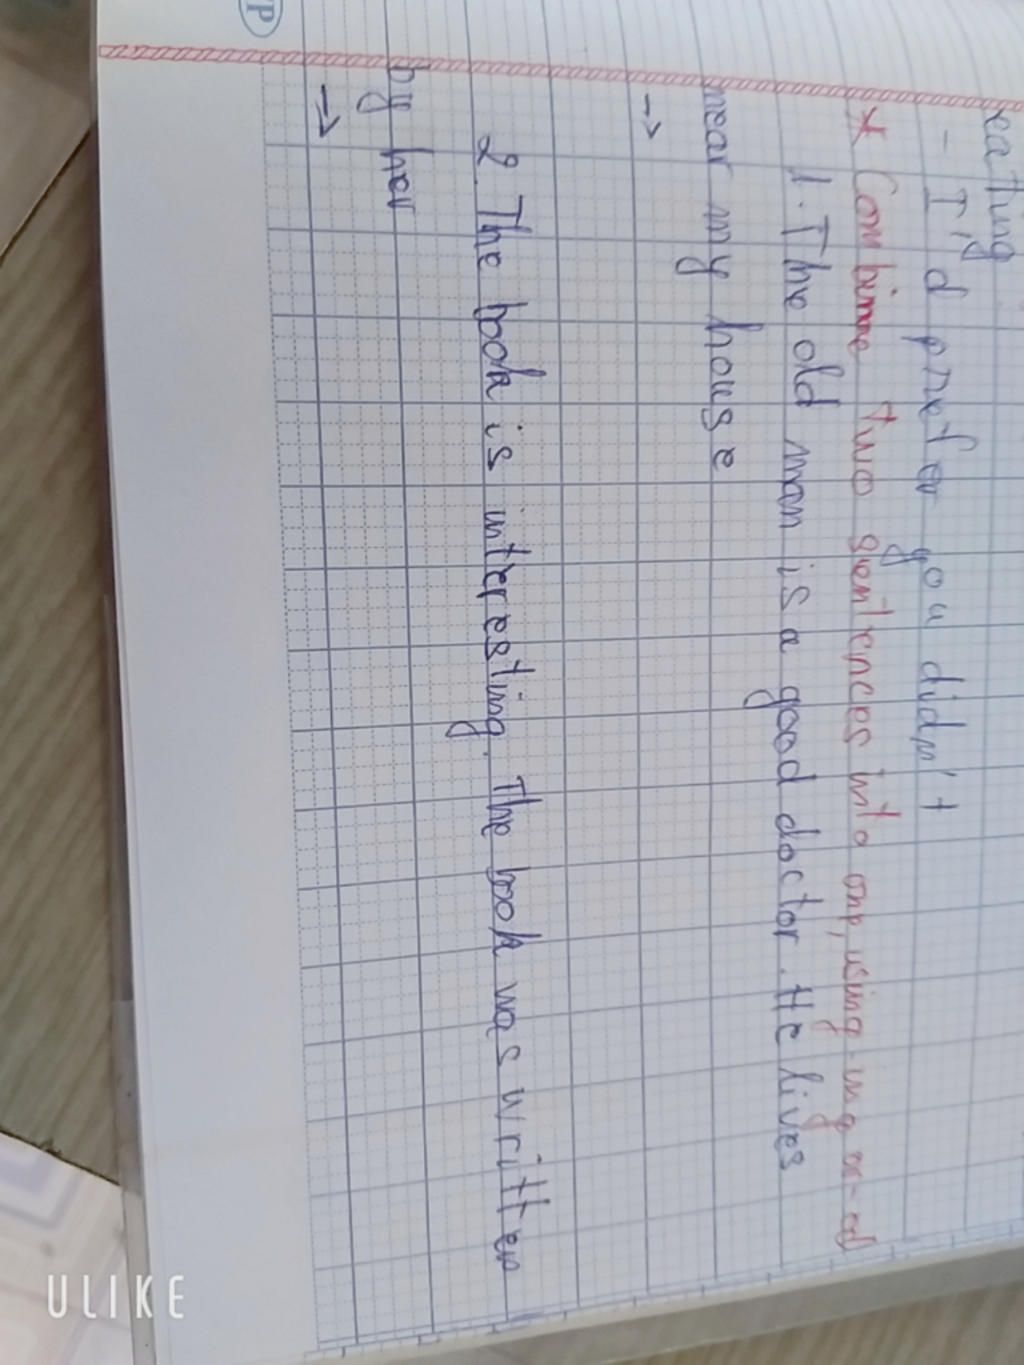 TP
eating
- I'd prefer you didn't
* Combime two sentences into one, using -ing or -ed
1. The old man is a good doctor. He lives
near my house
→
2. The book is interesting. The book was written
by her
→
ULIKE